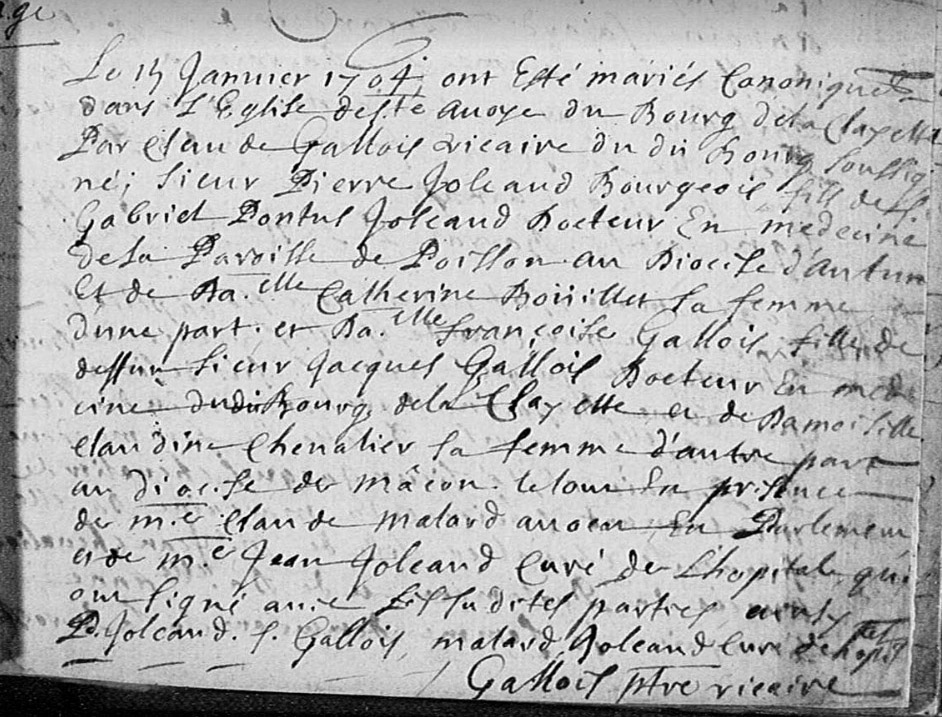 Le 15 Janvier 1704 ont Esté mariés Canoniquet
dans L'Eglise de ste avoye du Bourg dela Clayette
Par Claude Gallois vicaire du dit Bourg soussig
né; sieur Pierre Joleaud Bourgeois fils de sr
Gabriel Pontus Joleaud Docteur En medecine
dela Paroisse de Poisson au Diocese d'autun
Et de Da.elle Catherine Boüillet sa femme
dune part. et Da.elle françoise Gallois fille de
deffun sieur Jacques Gallois Docteur En mede
cine dudit Bourg dela Clayette et de Damoiselle
claudine Chevalier sa femme d'autre part
au diocese de mâcon. le tout En presence
de m.e Claude malard avocat En Parlement
et de m.e Jean Joleaud Curé de L'hopital, qui
ont signé avec Les susdites parties,
P. Joleaud. f. Gallois, malard, Joleaud Curé de
Gallois ptre vicaire